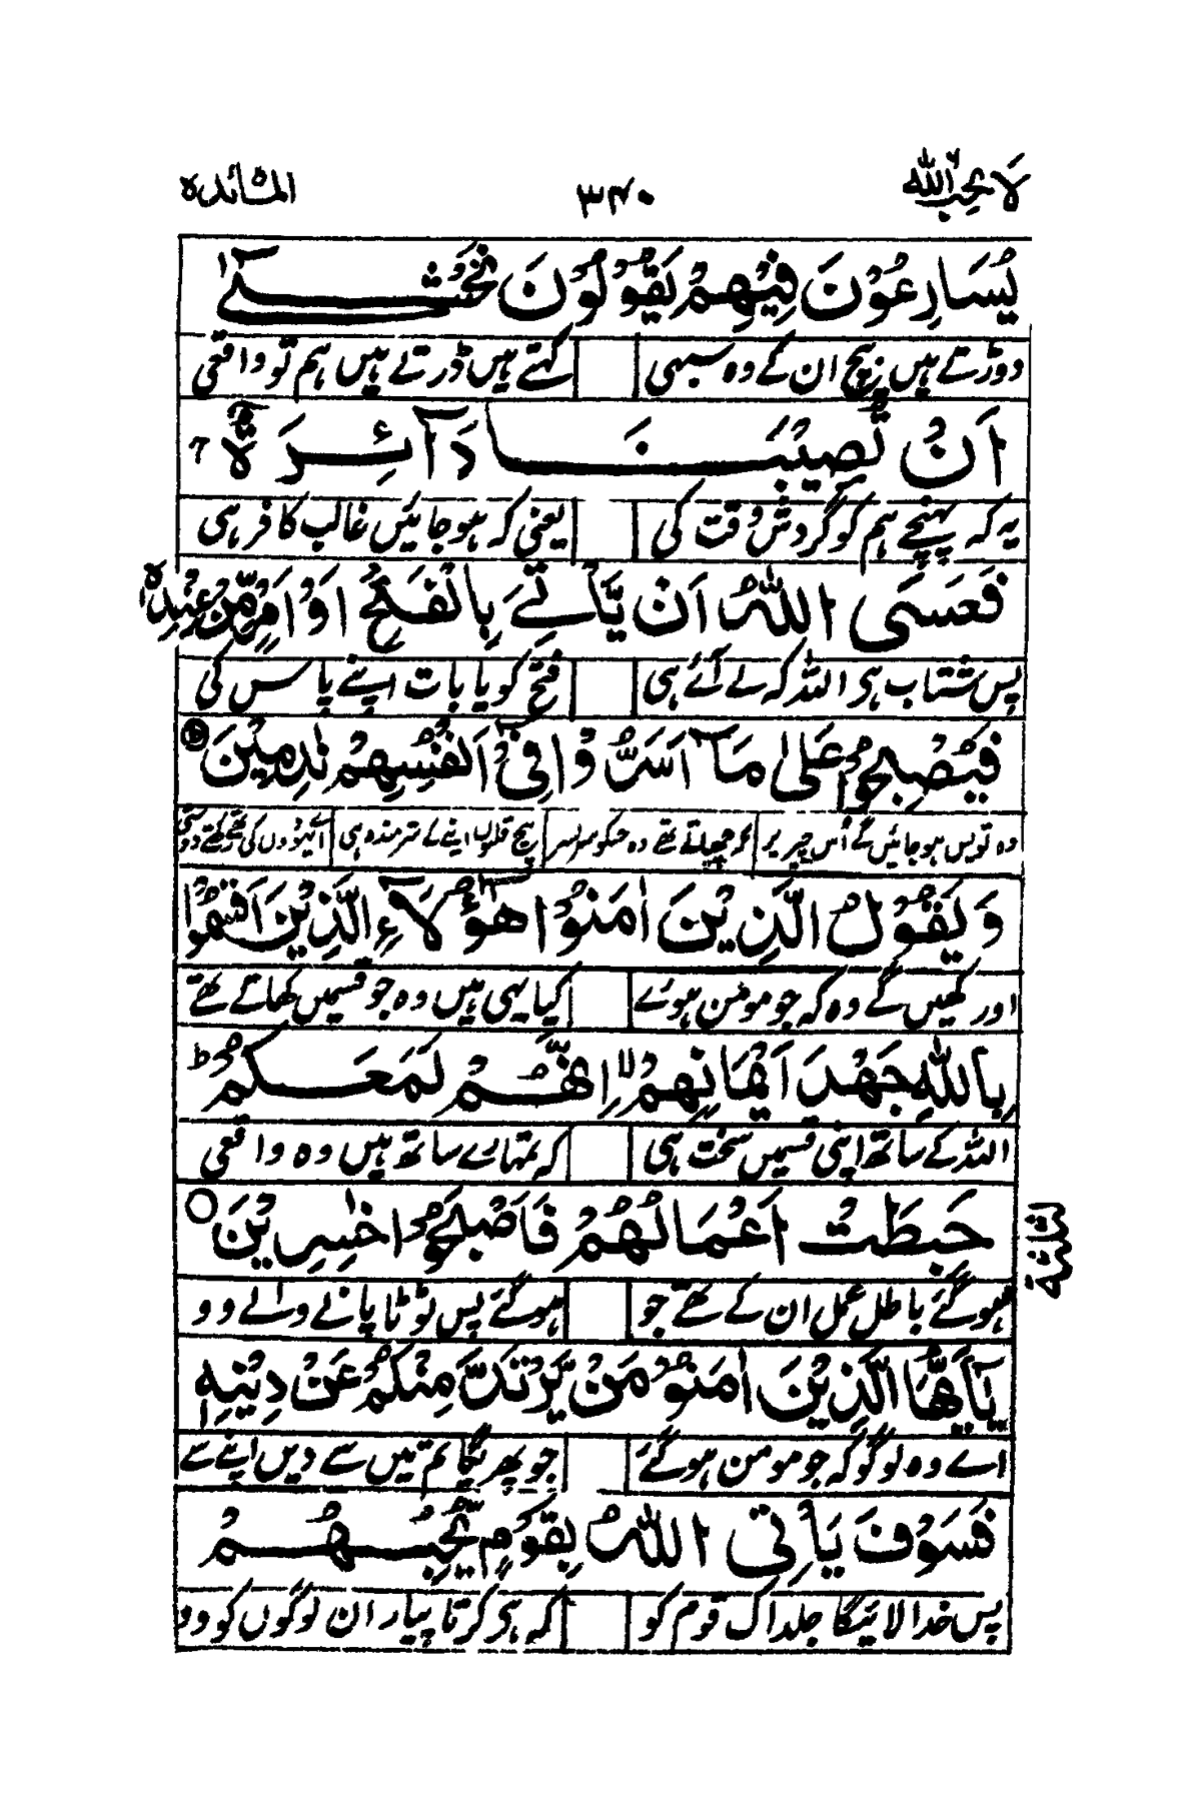 لَا یُحِبُّ اللّٰهُ ۳۴۰ المَآئدہ
یُسَارِعُوْنَ فِیْهِمْ یَقُوْلُوْنَ نَخْشٰۤی
دوڑتے ہیں بیچ ان کے وہ سبھی کہتے ہیں ڈرتے ہیں ہم تو واقعی
اَنْ تُصِیْبَنَا دَآئِرَةٌ ؕ
یہ کہ پہنچے ہم کو گردش وقت کی یعنی کہ ہو جائیں غالب کافر ہی
فَعَسَی اللّٰهُ اَنْ یَّاْتِیَ بِالْفَتْحِ اَوْ اَمْرٍ مِّنْ عِنْدِهٖ
پس شتاب ہی اللہ کہ لے آئے ہی فتح کو یا بات اپنے پاس کی
فَیُصْبِحُوْا عَلٰی مَاۤ اَسَرُّوْا فِیْۤ اَنْفُسِهِمْ نٰدِمِیْنَ
وہ تو بس ہو جائیں گے اُس چیز پر جو چھپاتے تھے وہ بیچ قلوں اپنے کے شرمندہ ہی
وَ یَقُوْلُ الَّذِیْنَ اٰمَنُوْۤا اَهٰۤؤُلَآءِ الَّذِیْنَ اَقْسَمُوْا
اور کہیں گے وہ کہ جو مومن ہوئے کیا یہی ہیں وہ جو قسمیں کھاتے تھے
بِاللّٰهِ جَهْدَ اَیْمَانِهِمْ ۙ اِنَّهُمْ لَمَعَكُمْ ؕ
اللہ کے ساتھ اپنی قسمیں سخت ہی کہ تمہارے ساتھ ہیں وہ واقعی
حَبِطَتْ اَعْمَالُهُمْ فَاَصْبَحُوْا خٰسِرِیْنَ ○
ہو گئے باطل عمل ان کے تھے جو ہو گئے پس ٹوٹا پانے والے وو
یٰۤاَیُّهَا الَّذِیْنَ اٰمَنُوْا مَنْ یَّرْتَدَّ مِنْكُمْ عَنْ دِیْنِهٖ
اے وہ لوگو کہ جو مومن ہو گئے جو پھریگا تم میں سے دیں اپنے سے
فَسَوْفَ یَاْتِی اللّٰهُ بِقَوْمٍ یُّحِبُّهُمْ
پس خدا لائیگا جلد اک قوم کو کہ ہی کرتا پیار ان لوگوں کو وو